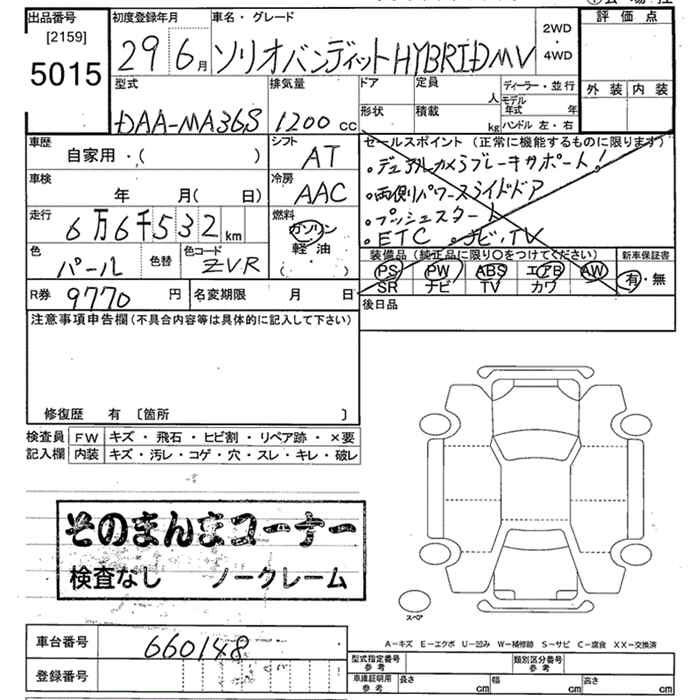 出品番号 初度登録年月 車名・グレード 評価点
[2159]
5015 29 6月 ソリオバンディットHYBRID MV 2WD・4WD
型式 排気量 ドア 定員 人 ディーラー・並行 外装 内装
DAA-MA36S 1200 cc 形状 積載 kg モデル年式 年
ハンドル 左・右
車歴 自家用・( ) シフト AT セールスポイント (正常に機能するものに限ります)
・デュアルカメラブレーキサポート!
車検 年 月(日) 冷房 AAC ・両側パワースライドドア
走行 6万6千532km 燃料 ガソリン 軽油 ( ・ ) ・プッシュスタート
・ETC ・ナビ・TV
色 パール 色替 色コード ZVR 装備品(純正品に限り○をつけてください) 新車保証書
PS PW ABS エアB AW 有・無
SR ナビ TV カワ
R券 9770円 名変期限 月 日 後日品
注意事項申告欄(不具合内容等は具体的に記入して下さい)
修復歴 有 [箇所 ]
検査員 FW キズ・飛石・ヒビ割・リペア跡・×要
記入欄 内装 キズ・汚レ・コゲ・穴・スレ・キレ・破レ
そのまんまコーナー
検査なし ノークレーム
スペア
A-キズ E-エクボ U-凹み W-補修跡 S-サビ C-腐食 XX-交換済
車台番号 660148 型式指定番号 参考 類別区分番号 参考
登録番号 車庫証明用 参考 長さ cm 幅 cm 高さ cm